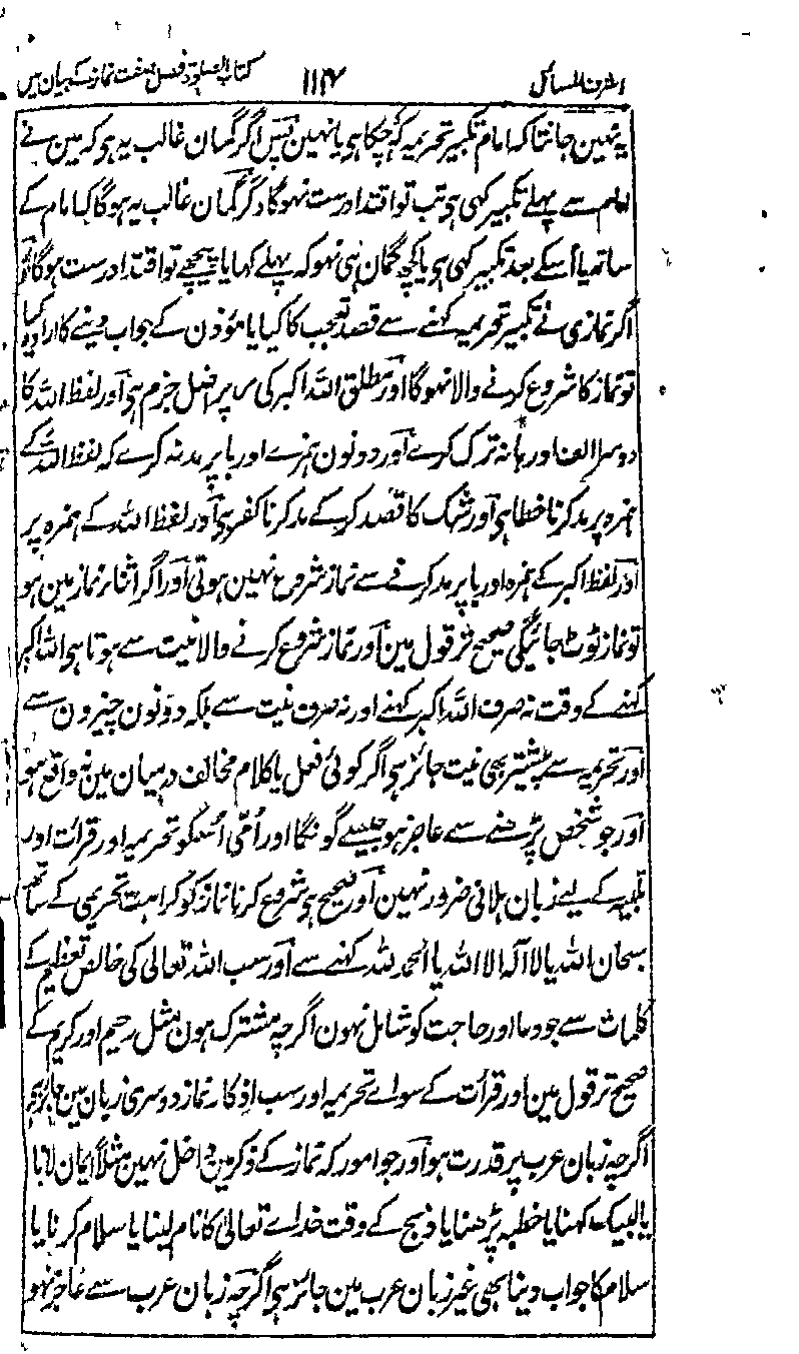 اشرف المسائل ۱۱۴ کتاب الصلوۃ فصل صفت نماز کے بیان میں
یہ نہین جانتا کہ امام تکبیر تحریمہ کہ چکا ہی یا نہین پس اگر گمان غالب یہ ہو کہ مین نے
امام سے پہلے تکبیر کہی ہی تب تو اقتدا درست نہوگا وگر گمان غالب یہ ہوگا کہ امام کے
ساتھ یا اُسکے بعد تکبیر کہی ہی یا کچھ گمان ہی نہو کہ پہلے کہا یا پیچھے تو اقتدا درست ہوگا اور
اگر نمازی نے تکبیر تحریمہ کہنے سے قصد تعجب کا کیا یا مؤذن کے جواب دینے کا ارادہ کیا
تو نماز کا شروع کرنے والا نہوگا اور مطلق اللہ اکبر کی رے پر اصل جزم ہی اور لفظ اللہ کا
دوسرا الف اور ہا نہ ترک کرے اور دونون ہمزے اور با پر مد نہ کرے کہ لفظ اللہ کے
ہمزہ پر مد کرنا خطا ہی اور شک کا قصد کر کے مد کرنا کفر ہی اور لفظ اللہ کے ہمزہ پر
اور لفظ اکبر کے ہمزہ اور با پر مد کرنے سے نماز شروع نہین ہوتی اور اگر اثناء نماز مین ہو
تو نماز ٹوٹ جائیگی صحیح تر قول مین اور نماز شروع کرنے والا نیت سے ہوتا ہی اللہ اکبر
کہنے کے وقت نہ صرف اللہ اکبر کہنے اور نہ صرف نیت سے بلکہ دونون چیزون سے
اور تحریمہ سے پیشتر بھی نیت جائز ہی اگر کوئی فعل یا کلام مخالف درمیان مین نہ واقع ہو
اور جو شخص پڑھنے سے عاجز ہو جیسے گونگا اور اُمّی اُسکو تحریمہ اور قرات اور
تلبیہ کے لیے زبان ہلانی ضرور نہین اور صحیح ہی شروع کرنا نماز کو کراہت تحریمی کے ساتھ
سبحان اللہ یا لا الہ الا اللہ یا الحمد للہ کہنے سے اور سب اللہ تعالی کی خالص تعظیم کے
کلمات سے جو دعا اور حاجت کو شامل نہون اگرچہ مشترک ہون مثل رحیم اور کریم کے
صحیح تر قول مین اور قرأت کے سواے تحریمہ اور سب اذکار نماز دوسری زبان مین جائز ہی
اگرچہ زبان عرب پر قدرت ہو اور جو امور کہ نماز کے ذکر مین داخل نہین مثلاً ایمان لانا
یا لبیک کہنا یا خطبہ پڑھنا یا ذبح کے وقت خداے تعالی کا نام لینا یا سلام کرنا یا
سلام کا جواب دینا بھی غیر زبان عرب مین جائز ہی اگرچہ زبان عرب سے عاجز نہو